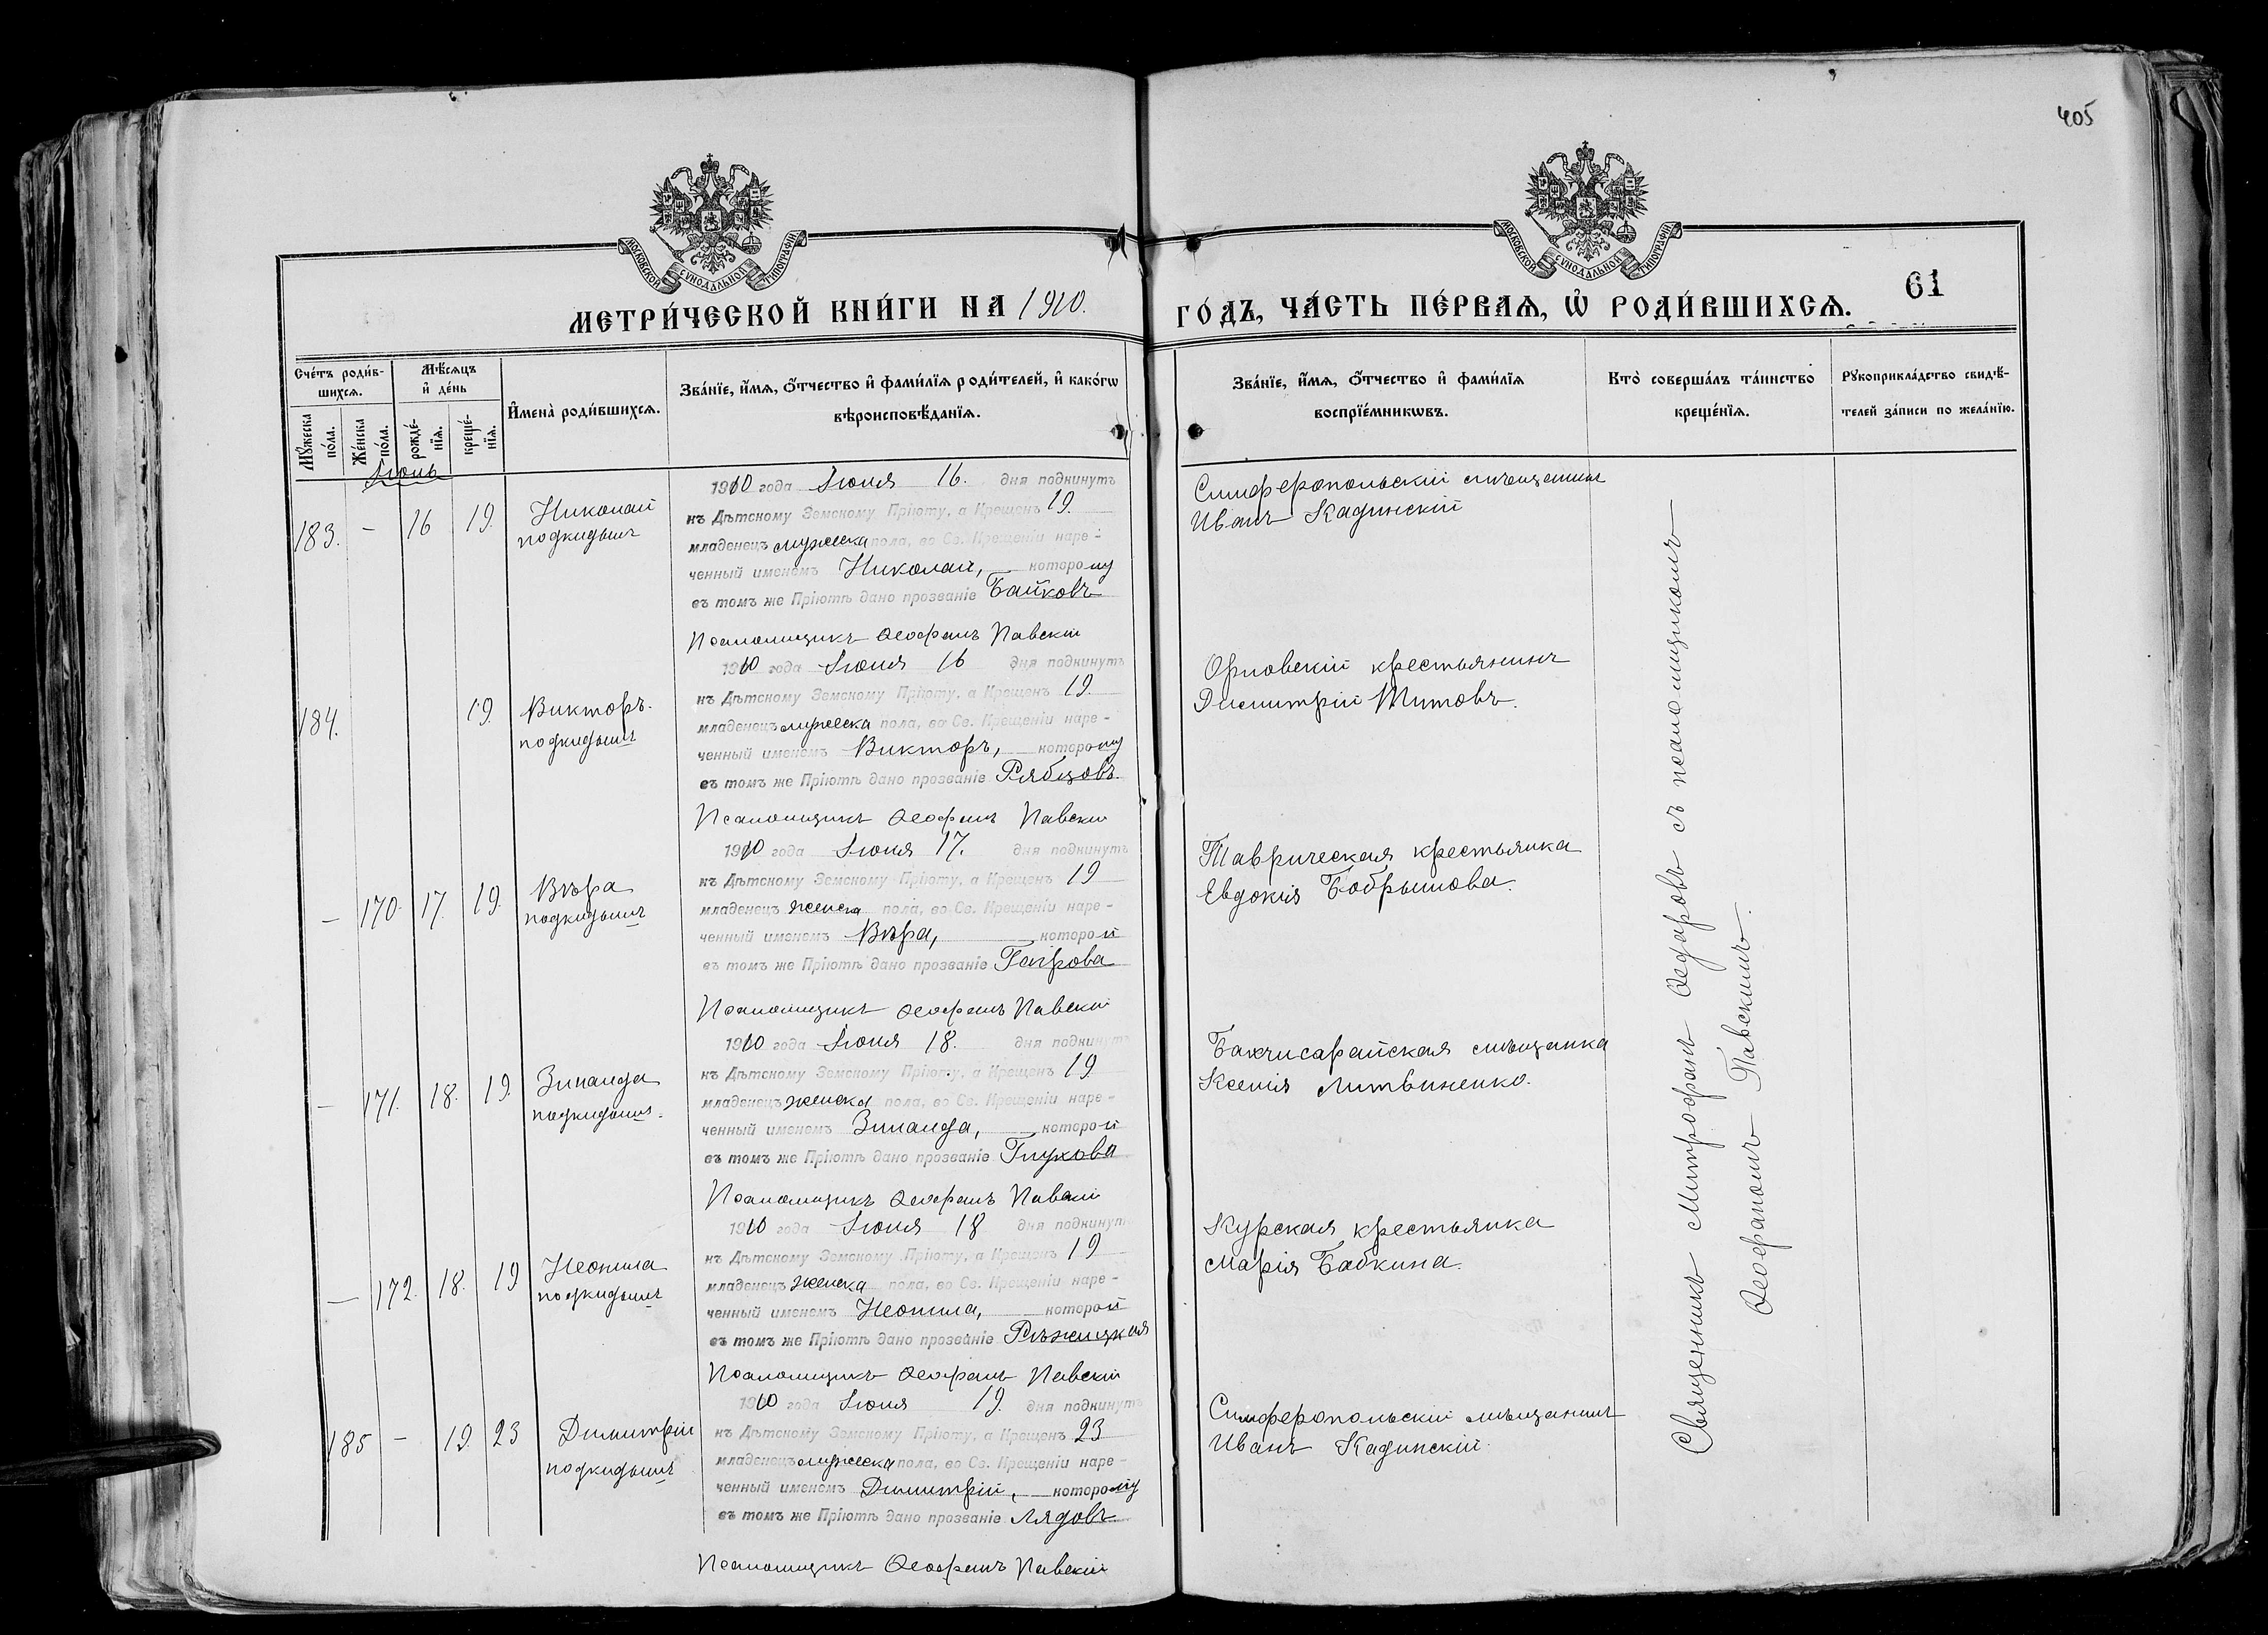 405
МОСКОВСКОЙ СУНОДАЛЬНОЙ ТИПОГРАФІИ
МОСКОВСКОЙ СУНОДАЛЬНОЙ ТИПОГРАФІИ
61
МЕТРИ́ЧЕСКОЙ КНИ́ГИ НА 1910.
ГО́ДЪ, ЧА́СТЬ ПЕ́РВАѦ, Ѡ҆ РОДИ́ВШИХСѦ.
Сче́тъ роди́в-
шихсѧ.
Мꙋ́жеска по́ла.
Же́нска по́ла.
Мѣ́сѧцъ
и҆ де́нь
рожде́-нїѧ.
креще́-нїѧ.
И҆мена̀ роди́вшихсѧ.
Зва́нїе, и҆́мѧ, ѻ҆́тчество и҆ фами́лїѧ роди́телей, и҆ како́гѡ
вѣроисповѣ́данїѧ.
Зва́нїе, и҆́мѧ, ѻ҆́тчество и҆ фами́лїѧ
воспрїе́мникѡвъ.
Кто̀ соверша́лъ та́инство
креще́нїѧ.
Рꙋкоприкла́дство свидѣ́-
телей за́писи по жела́нїю.
Іюнь
183. - 16 19. Николай
подкидышъ
1910 года Іюня 16. дня подкинутъ
къ Дѣтскому Земскому Пріюту, а Крещенъ 19.
младенецъ мужеска пола, во Св. Крещеніи наре-
ченный именемъ Николай, которому
въ томъ же Пріютѣ дано прозваніе Байковъ
Псаломщикъ Ѳеофанъ Павскій
Симферопольскій мѣщанинъ
Иванъ Кадинскій
184. 19. Викторъ.
подкидышъ
1910 года Іюня 16 дня подкинутъ
къ Дѣтскому Земскому Пріюту, а Крещенъ 19.
младенецъ мужеска пола, во Св. Крещеніи наре-
ченный именемъ Викторъ, которому
въ томъ же Пріютѣ дано прозваніе Рябцовъ.
Псаломщикъ Ѳеофанъ Павскій
Орловскій крестьянинъ
Димитрій Титовъ.
- 170. 17. 19. Вѣра
подкидышъ
1910 года Іюня 17. дня подкинутъ
къ Дѣтскому Земскому Пріюту, а Крещенъ 19
младенецъ женска пола, во Св. Крещеніи наре-
ченный именемъ Вѣра, которой
въ томъ же Пріютѣ дано прозваніе
Псаломщикъ Ѳеофанъ Павскій
Таврическая крестьянка
Евдокія Бобрышова.
- 171. 18. 19. Зинаида
подкидышъ.
1910 года Іюня 18. дня подкинутъ
къ Дѣтскому Земскому Пріюту, а Крещенъ 19
младенецъ женска пола, во Св. Крещеніи наре-
ченный именемъ Зинаида, которой
въ томъ же Пріютѣ дано прозваніе Глухова
Псаломщикъ Ѳеофанъ Павскій
Бахчисарайская мѣщанка
Ксенія Литвиненко.
- 172. 18. 19 Неонила
подкидышъ
1910 года Іюня 18 дня подкинутъ
къ Дѣтскому Земскому Пріюту, а Крещенъ 19
младенецъ женска пола, во Св. Крещеніи наре-
ченный именемъ Неонила, которой
въ томъ же Пріютѣ дано прозваніе
Псаломщикъ Ѳеофанъ Павскій
Курская крестьянка
Марія Бабкина.
185 - 19. 23 Димитрій
подкидышъ
1910 года Іюня 19. дня подкинутъ
къ Дѣтскому Земскому Пріюту, а Крещенъ 23
младенецъ мужеска пола, во Св. Крещеніи наре-
ченный именемъ Димитрій, которому
въ томъ же Пріютѣ дано прозваніе Лядовъ
Псаломщикъ Ѳеофанъ Павскій
Симферопольскій мѣщанинъ
Иванъ Кадинскій.
Священникъ Митрофанъ Ѳедоровъ съ псаломщикомъ
Ѳеофаномъ Павскимъ.